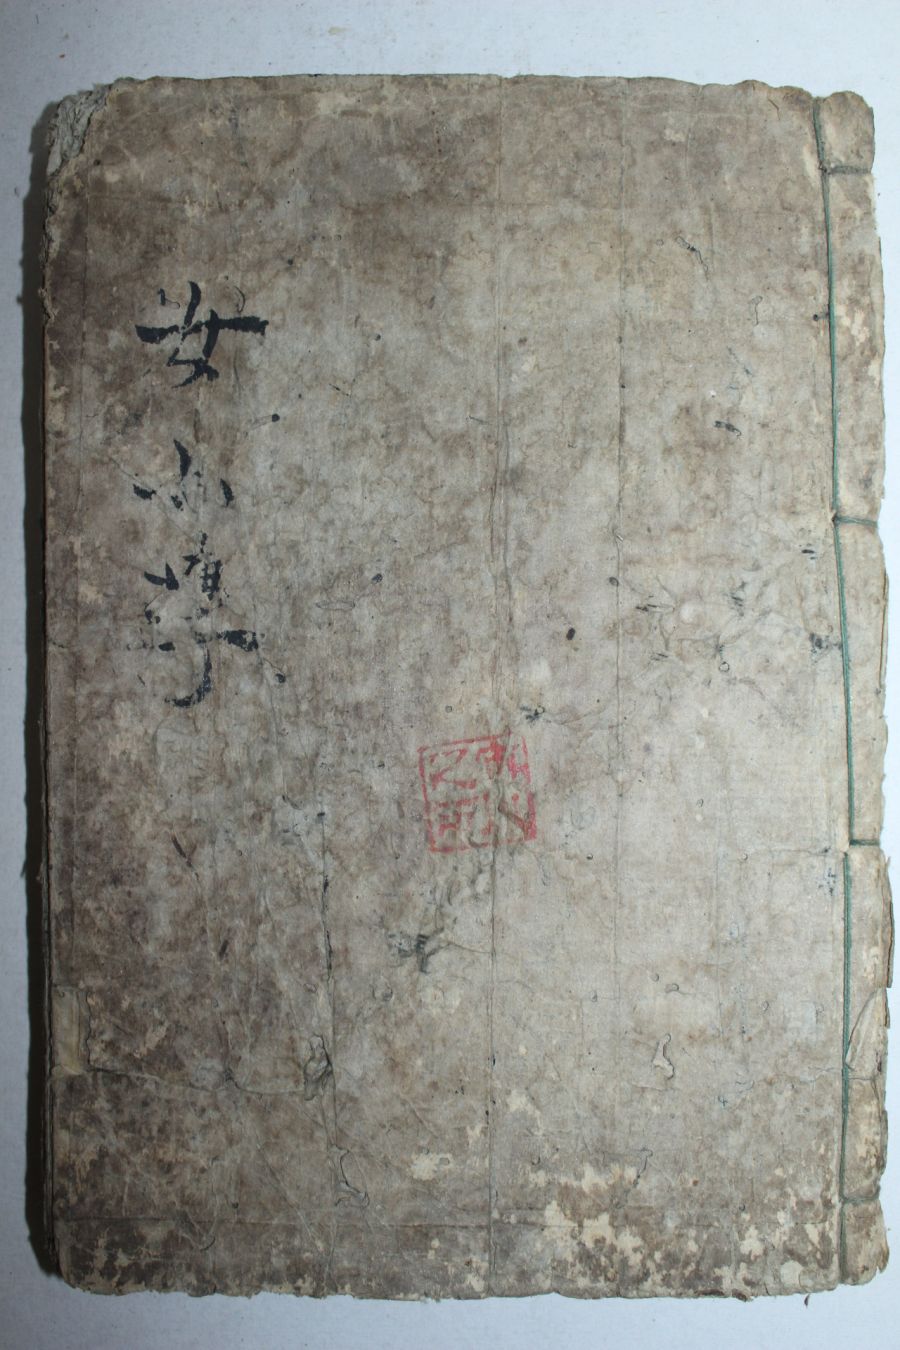 女小學